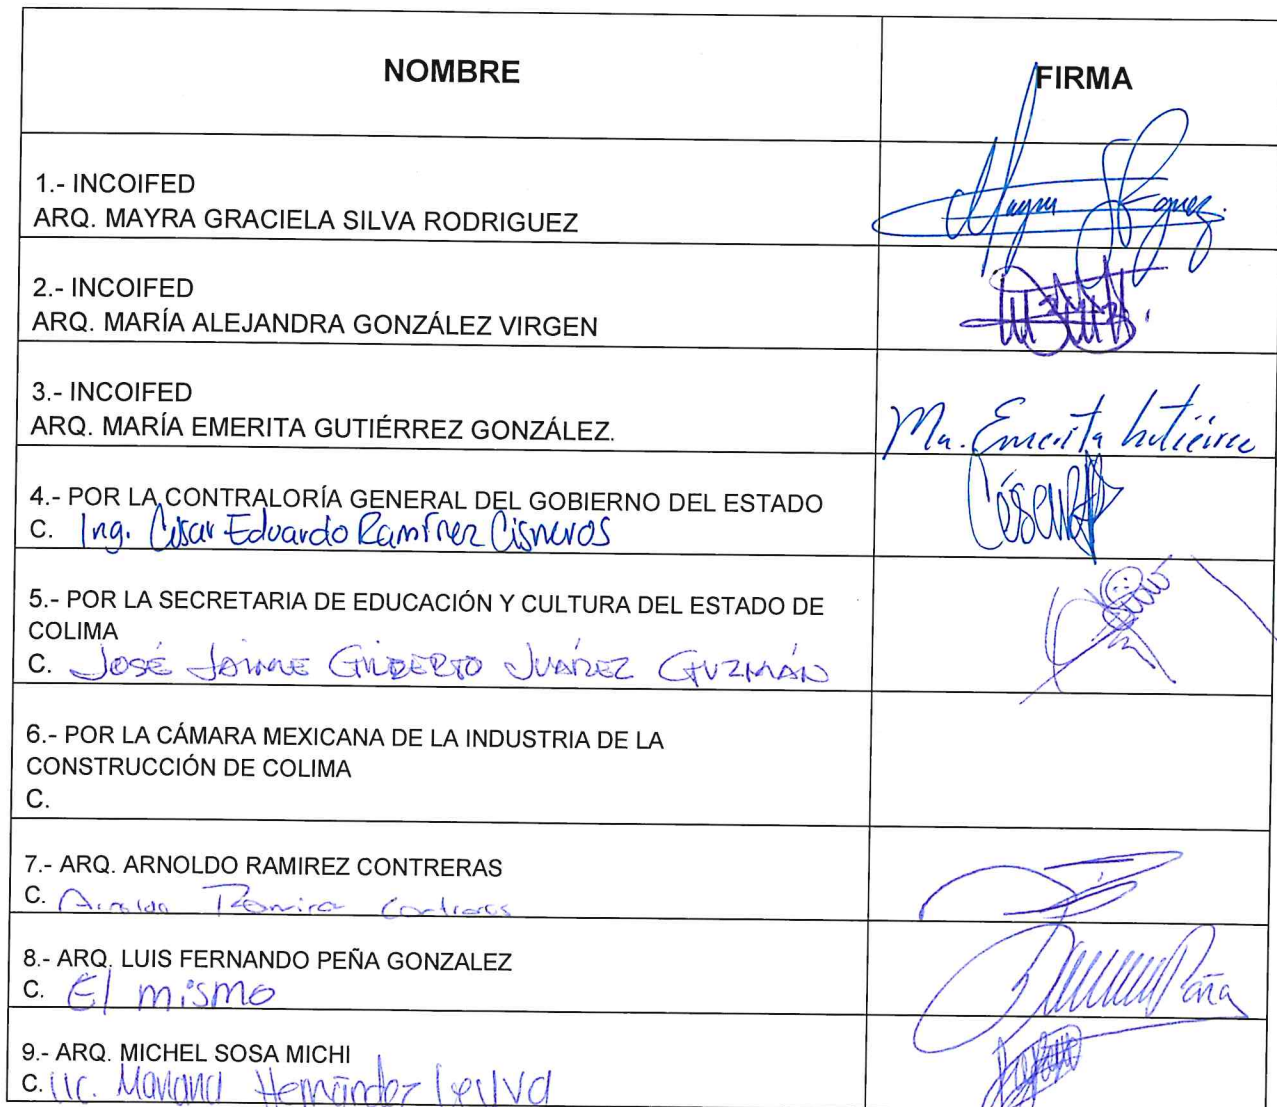 NOMBRE FIRMA
1.- INCOIFED
ARQ. MAYRA GRACIELA SILVA RODRIGUEZ
2.- INCOIFED
ARQ. MARÍA ALEJANDRA GONZÁLEZ VIRGEN
3.- INCOIFED
ARQ. MARÍA EMERITA GUTIÉRREZ GONZÁLEZ. Ma. Emerita Gutiérrez
4.- POR LA CONTRALORÍA GENERAL DEL GOBIERNO DEL ESTADO
C. Ing. César Eduardo Ramírez Cisneros
5.- POR LA SECRETARIA DE EDUCACIÓN Y CULTURA DEL ESTADO DE
COLIMA
C. JOSÉ JAIME GILBERTO JUÁREZ GUZMÁN
6.- POR LA CÁMARA MEXICANA DE LA INDUSTRIA DE LA
CONSTRUCCIÓN DE COLIMA
C.
7.- ARQ. ARNOLDO RAMIREZ CONTRERAS
C. Arnoldo Ramirez Contreras
8.- ARQ. LUIS FERNANDO PEÑA GONZALEZ
C. El mismo
9.- ARQ. MICHEL SOSA MICHI
C. Lic. Mariana Hernández